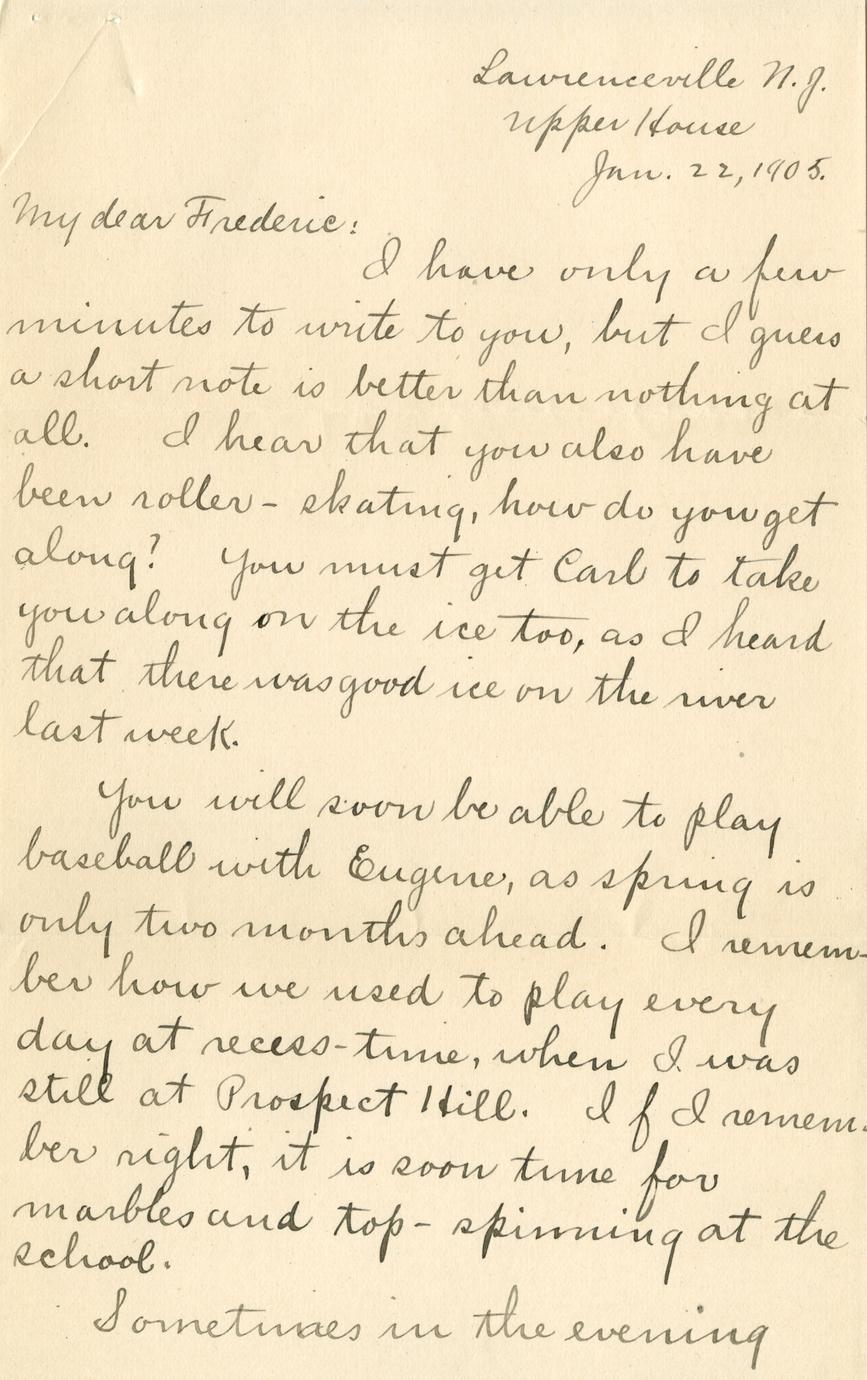 Lawrenceville N.J.
Upper House
Jan. 22, 1905.
My dear Frederic:
I have only a few
minutes to write to you, but I guess
a short note is better than nothing at
all. I hear that you also have
been roller-skating, how do you get
along? You must get Carl to take
you along on the ice too, as I heard
that there was good ice on the river
last week.
You will soon be able to play
baseball with Eugene, as spring is
only two months ahead. I remem-
ber how we used to play every
day at recess-time, when I was
still at Prospect Hill. If I remem-
ber right, it is soon time for
marbles and top-spinning at the
school.
Sometimes in the evening